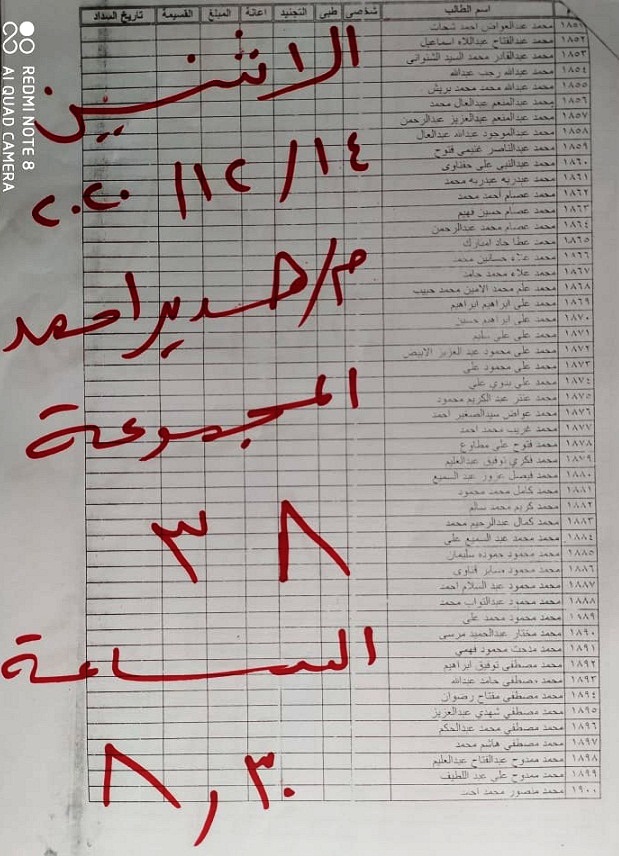 م اسم الطالب شخصى طبى التجنيد اعانة المبلغ القسيمة تاريخ السداد
١٨٥١ محمد عبدالعواض احمد شحات
١٨٥٢ محمد عبدالفتاح عبداللاه اسماعيل
١٨٥٣ محمد عبدالقادر محمد السيد الشنوانى
١٨٥٤ محمد عبدالله رجب عبدالله
١٨٥٥ محمد عبدالله محمد محمد بريش
١٨٥٦ محمد عبدالمنعم عبدالعال محمد
١٨٥٧ محمد عبدالمنعم عبدالعزيز عبدالرحمن
١٨٥٨ محمد عبدالموجود عبدالله عبدالعال
١٨٥٩ محمد عبدالناصر غنيمى فتوح
١٨٦٠ محمد عبدالنبى على حفناوى
١٨٦١ محمد عبدربه عبدربه محمد
١٨٦٢ محمد عصام احمد محمد
١٨٦٣ محمد عصام حسين فهيم
١٨٦٤ محمد عصام محمد عبدالرحمن
١٨٦٥ محمد عطا جاد امبارك
١٨٦٦ محمد علاء حسانين محمد
١٨٦٧ محمد علاء محمد حامد
١٨٦٨ محمد علم محمد الامين محمد حبيب
١٨٦٩ محمد على ابراهيم ابراهيم
١٨٧٠ محمد على ابراهيم حسين
١٨٧١ محمد على على سليم
١٨٧٢ محمد على محمود عبد العزيز الابيض
١٨٧٣ محمد على محمود على
١٨٧٤ محمد على بدوي علي
١٨٧٥ محمد عنتر عبد الكريم محمود
١٨٧٦ محمد عواض سيدالصغير احمد
١٨٧٧ محمد غريب محمد احمد
١٨٧٨ محمد فتوح على مطاوع
١٨٧٩ محمد فكري توفيق عبدالعليم
١٨٨٠ محمد فيصل عبد السميع
١٨٨١ محمد كامل محمد محمود
١٨٨٢ محمد كريم محمد سالم
١٨٨٣ محمد كمال عبدالرحيم محمد
١٨٨٤ محمد محمد عبد السميع على
١٨٨٥ محمد محمود حموده سليمان
١٨٨٦ محمد محمود صابر قناوى
١٨٨٧ محمد محمود عبد السلام احمد
١٨٨٨ محمد محمود عبدالتواب محمد
١٨٨٩ محمد محمود محمد على
١٨٩٠ محمد مختار عبدالحميد مرسى
١٨٩١ محمد مدحت محمود فهمي
١٨٩٢ محمد مصطفى توفيق ابراهيم
١٨٩٣ محمد مصطفى حامد عبدالله
١٨٩٤ محمد مصطفى مفتاح رضوان
١٨٩٥ محمد مصطفى شهدي عبدالعزيز
١٨٩٦ محمد مصطفى محمد عبدالحكم
١٨٩٧ محمد مصطفى هاشم محمد
١٨٩٨ محمد ممدوح عبدالفتاح عبدالعليم
١٨٩٩ محمد ممدوح على عبد اللطيف
١٩٠٠ محمد منصور محمد احمد
الاثنين
١٤/١٢/٢٠٢٠
م/هديراحمد
المجموعة
٣٨
الساعة
٨,٣٠
REDMI NOTE 8
AI QUAD CAMERA